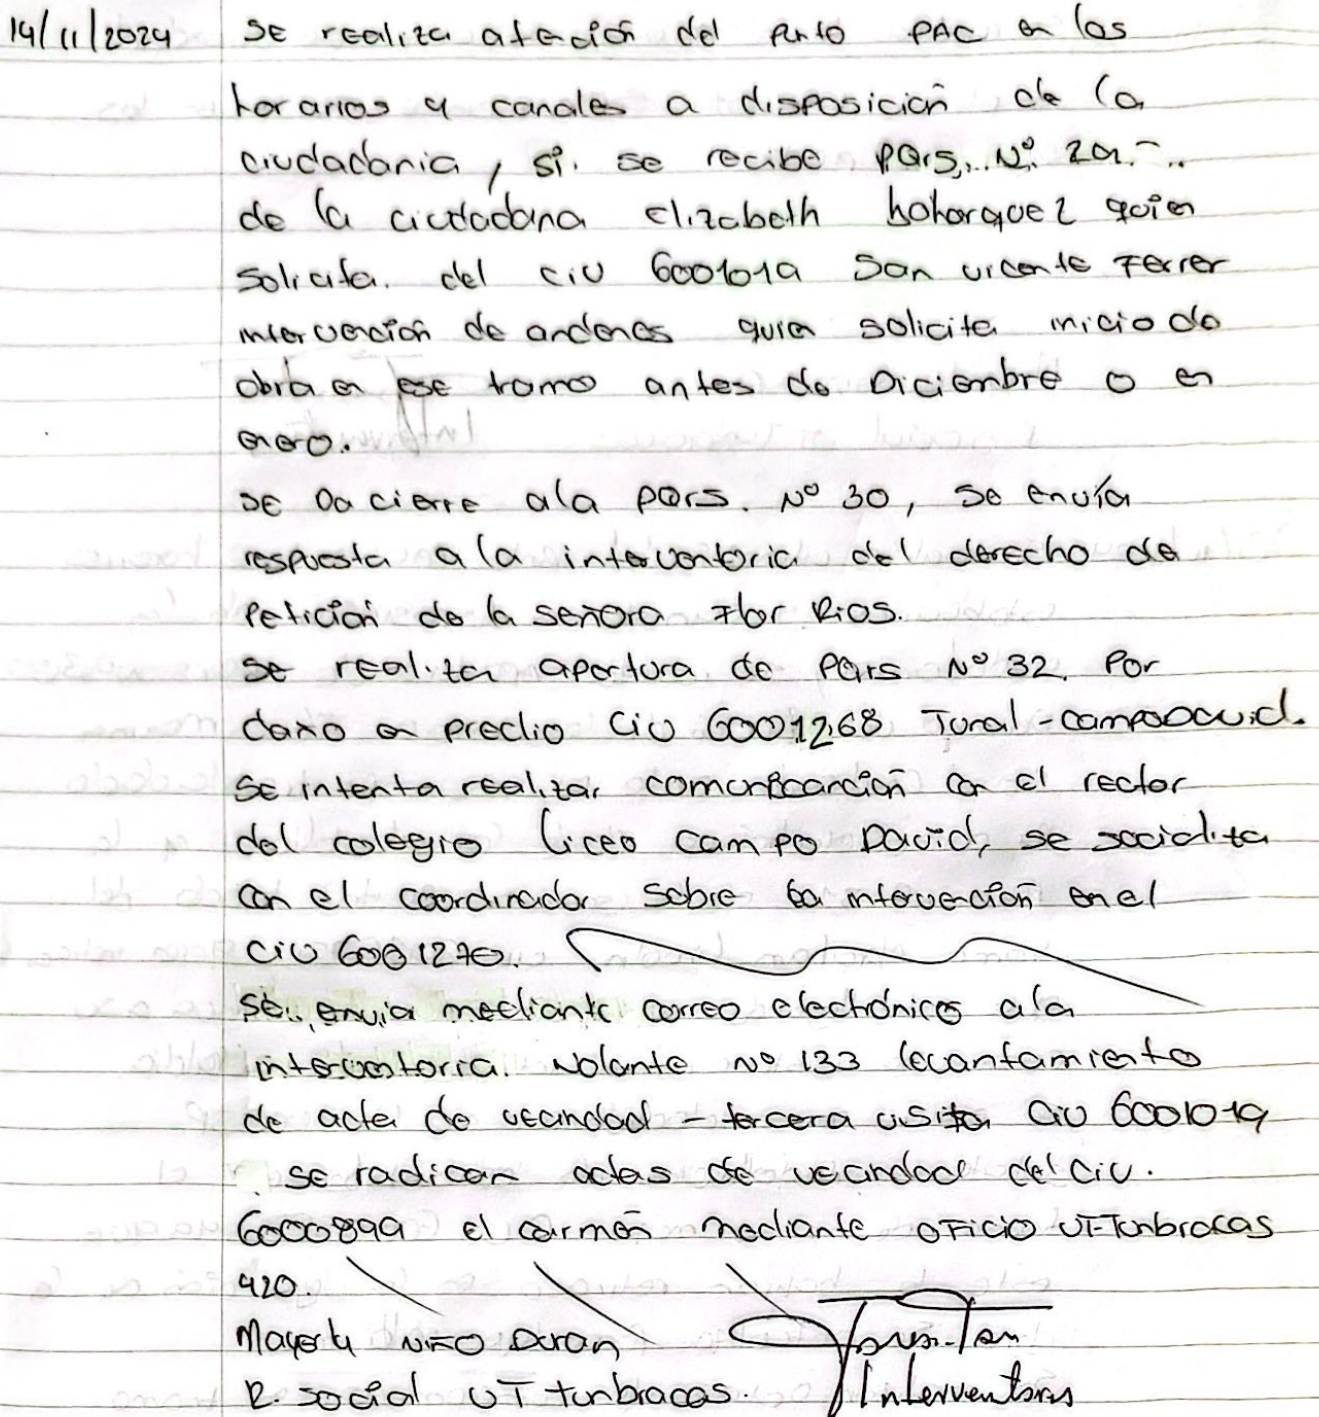 14/11/2024 se realiza atención del Punto PAC en los
horarios y canales a disposición de la
ciudadania, si. se recibe PQrs, Nº 29.
de la ciudadana Elizabeth bohorquez quien
solicita. del CIU 6001019 San vicente Ferrer
intervención de andenes quien solicita inicio de
obra en ese tramo antes de Diciembre o en
enero.
SE Da cierre ala PQrs. Nº 30, se envía
respuesta a la interventoria del derecho de
Petición de la señora Flor Rios.
SE realiza apertura de PQrs Nº 32. Por
daño en predio CIU 6001268 Tunal - campoDavid.
SE intenta realizar comunicanción con el rector
del colegio liceo campo David, se socializa
con el coordinador sobre la intervención en el
CIU 6001270.
SE envia mediante correo electrónico a la
interventorria. Volante Nº 133 levantamiento
de acta de vecindad - tercera visita CIU 6001019
. SE radican actas de vecindad del CIU.
6000899 el carmen mediante oficio UT-Tunbracas
420.
Mayerly NIÑO Duran
R. social UT tunbracas. Interventoria